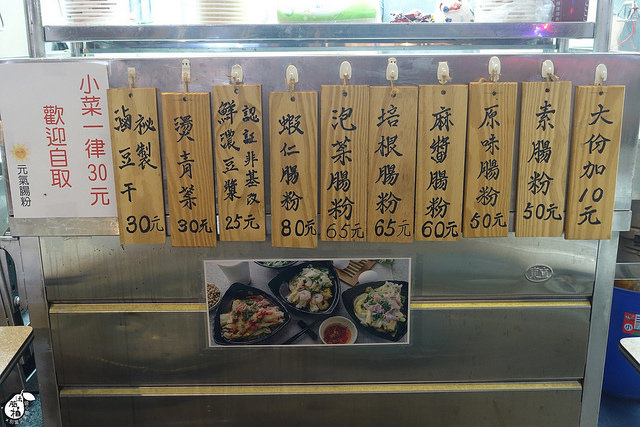 大份加10元
素腸粉
50元
原味腸粉
50元
麻醬腸粉
60元
培根腸粉
65元
泡菜腸粉
65元
蝦仁腸粉
80元
認証非基改
鮮濃豆漿
25元
燙青菜
30元
祕製
滷豆干
30元
小菜一律30元
歡迎自取
元氣腸粉